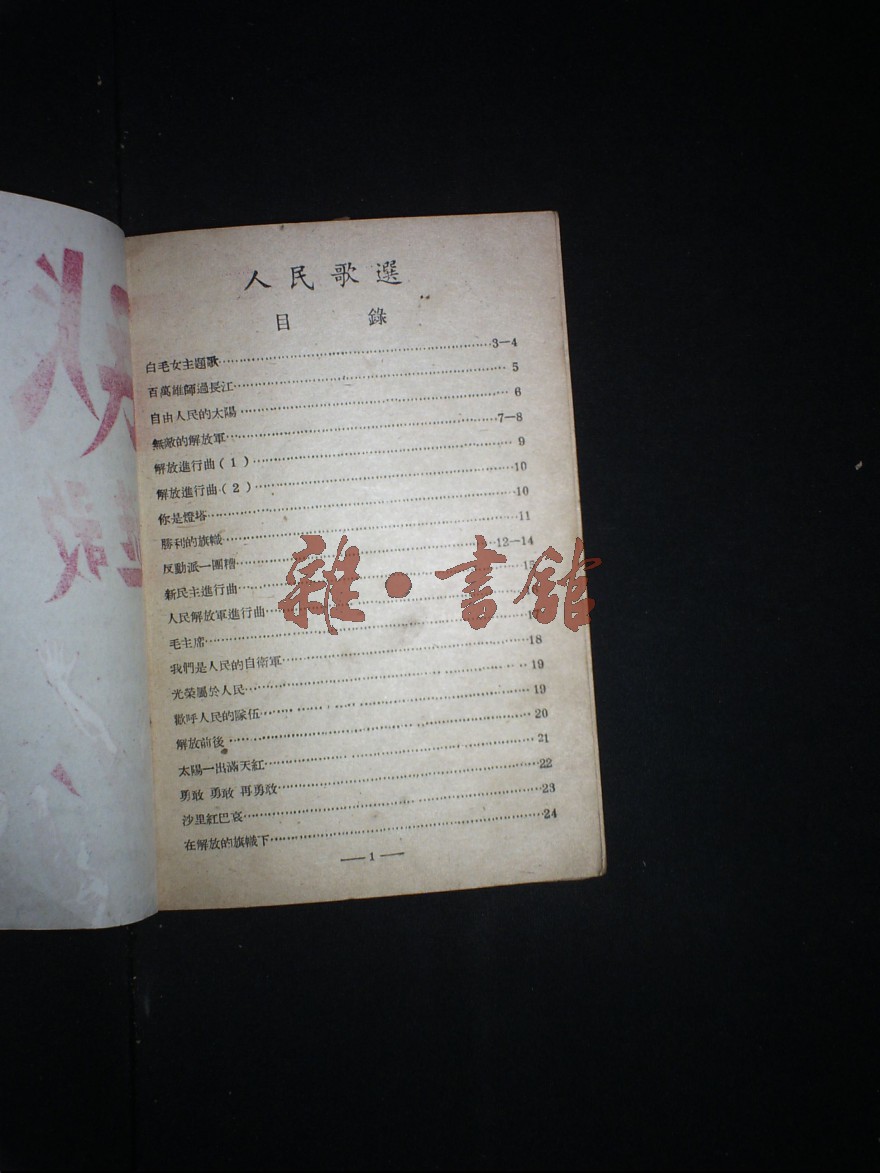 人民歌選
目 錄
白毛女主題歌 3—4
百萬雄師過長江 5
自由人民的太陽 6
無敵的解放軍 7—8
解放進行曲(1) 9
解放進行曲(2) 10
你是燈塔 10
勝利的旗幟 11
反動派一團糟 12—14
新民主進行曲 15
人民解放軍進行曲
毛主席
我們是人民的自衛軍 18
光榮屬於人民 19
歡呼人民的隊伍 19
解放前後 20
太陽一出滿天紅 21
勇敢 勇敢 再勇敢 22
沙里紅巴哀 23
在解放的旗幟下 24
—1—
雜·書館